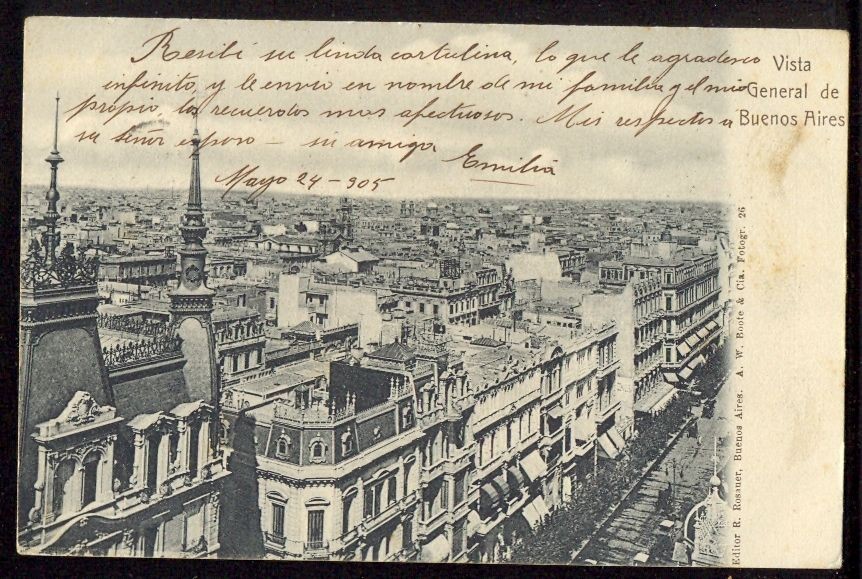 Resibí su linda cartulina, lo que le agradesco
infinito, y le envio en nombre de mi familia y el mio
propio, los recuerdos mas afectuosos. Mis respetos a
su señor esposo - su amiga Emilia
Mayo 24 - 905
Vista
General de
Buenos Aires
Editor R. Rosauer, Buenos Aires. A. W. Boote & Cia. Fotogr. 26